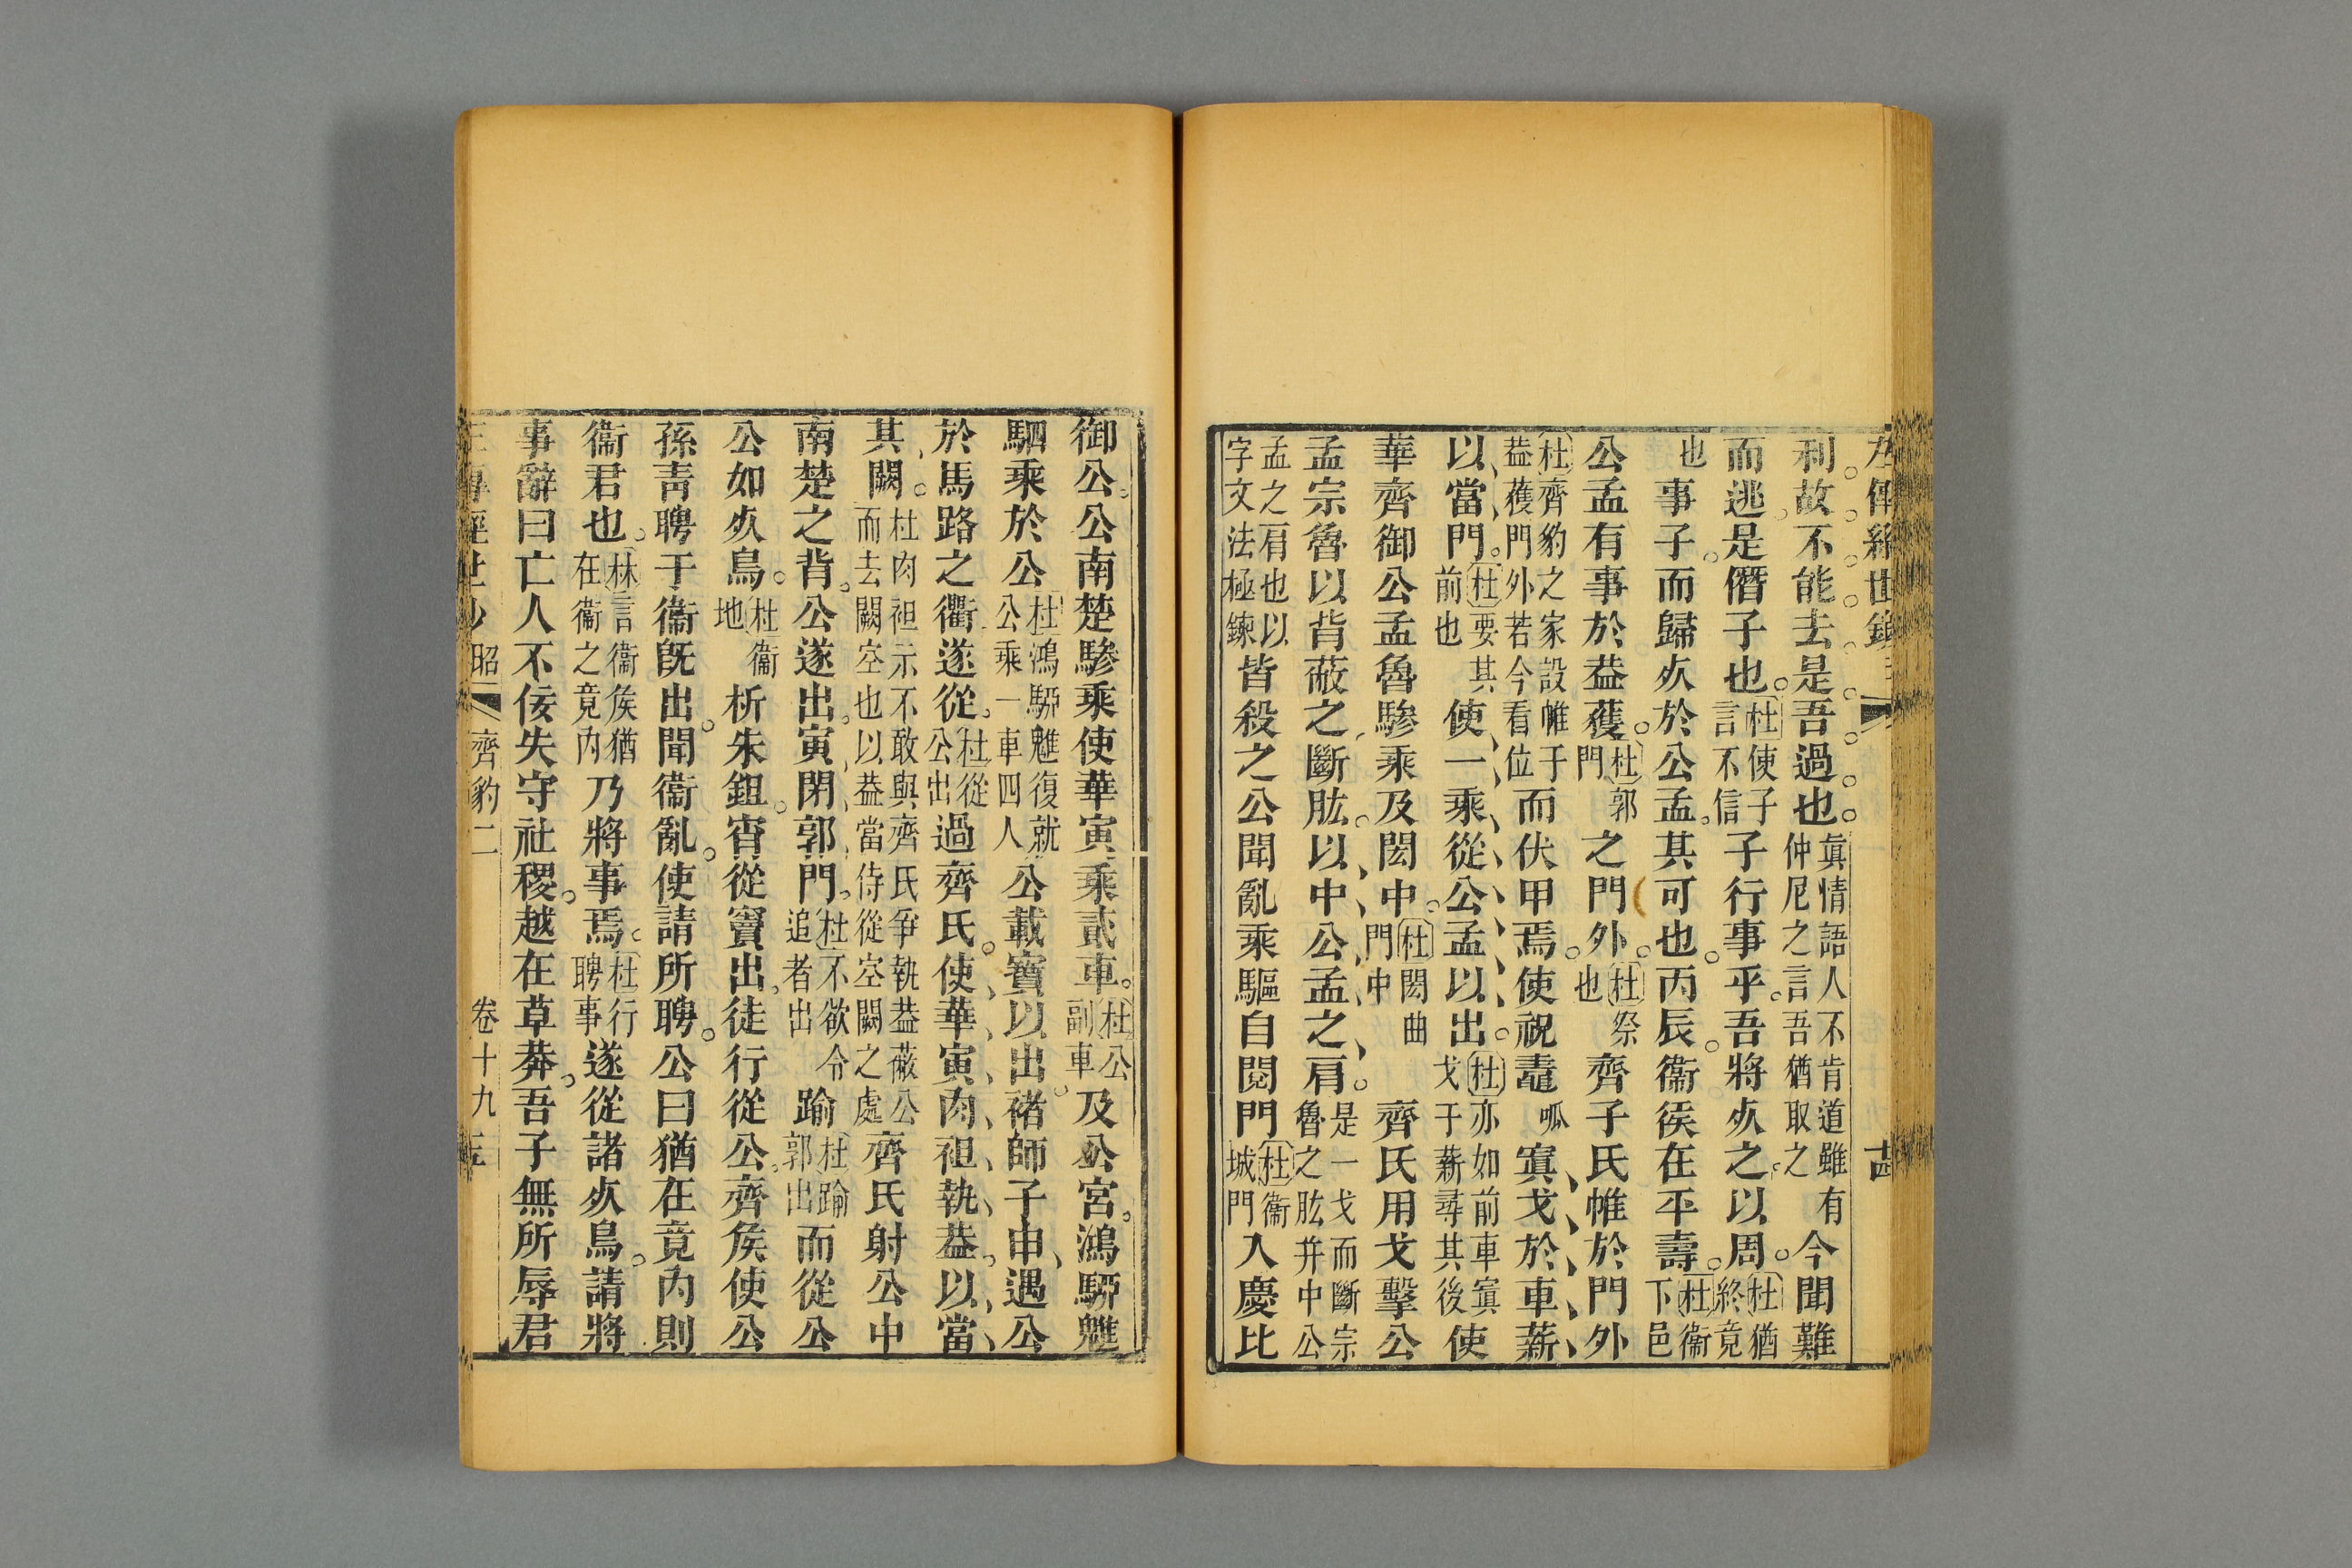 左傳經世鈔
利故不能去是吾過也眞情語人不肯道雖有仲尼之言吾猶取之今聞難
而逃是僭子也杜使子言不信子行事乎吾將死之以周杜猶終竟
也事子而歸死於公孟其可也丙辰衞侯在平壽杜衞下邑
公孟有事於葢蒦杜郭門之門外杜祭也齊子氏帷於門外
杜齊豹之家設帷于葢蒦門外若今看位而伏甲焉使祝鼃呱寘戈於車薪
以當門杜要其前也使一乘從公孟以出杜亦如前車寘戈于薪尋其後使
華齊御公孟魯驂乘及閎中杜閎曲門中齊氏用戈擊公
孟宗魯以背蔽之斷肱以中公孟之肩是一戈而斷宗魯之肱幷中公
孟之肩也以字文法極鍊皆殺之公聞亂乘驅自閱門杜衞城門入慶比
御公公南楚驂乘使華寅乘貳車杜公副車及公宮鴻駵魋
駟乘於公杜鴻駵魋復就公乘一車四人公載寶以出褚師子申遇公
於馬路之衢遂從杜從公出過齊氏使華寅肉袒執葢以當
其闕杜肉袒示不敢與齊氏爭執葢蔽公而去闕空也以葢當侍從空闕之處齊氏射公中
南楚之背公遂出寅閉郭門杜不欲令追者出踰杜踰郭出而從公
公如死鳥杜衞地析朱鉏宵從竇出徒行從公齊侯使公
孫靑聘于衞旣出聞衞亂使請所聘公曰猶在竟內則
衞君也林言衞侯猶在衞之竟內乃將事焉杜行聘事遂從諸死鳥請將
事辭曰亡人不佞失守社稷越在草莽吾子無所辱君
昭 齊豹二 卷十九